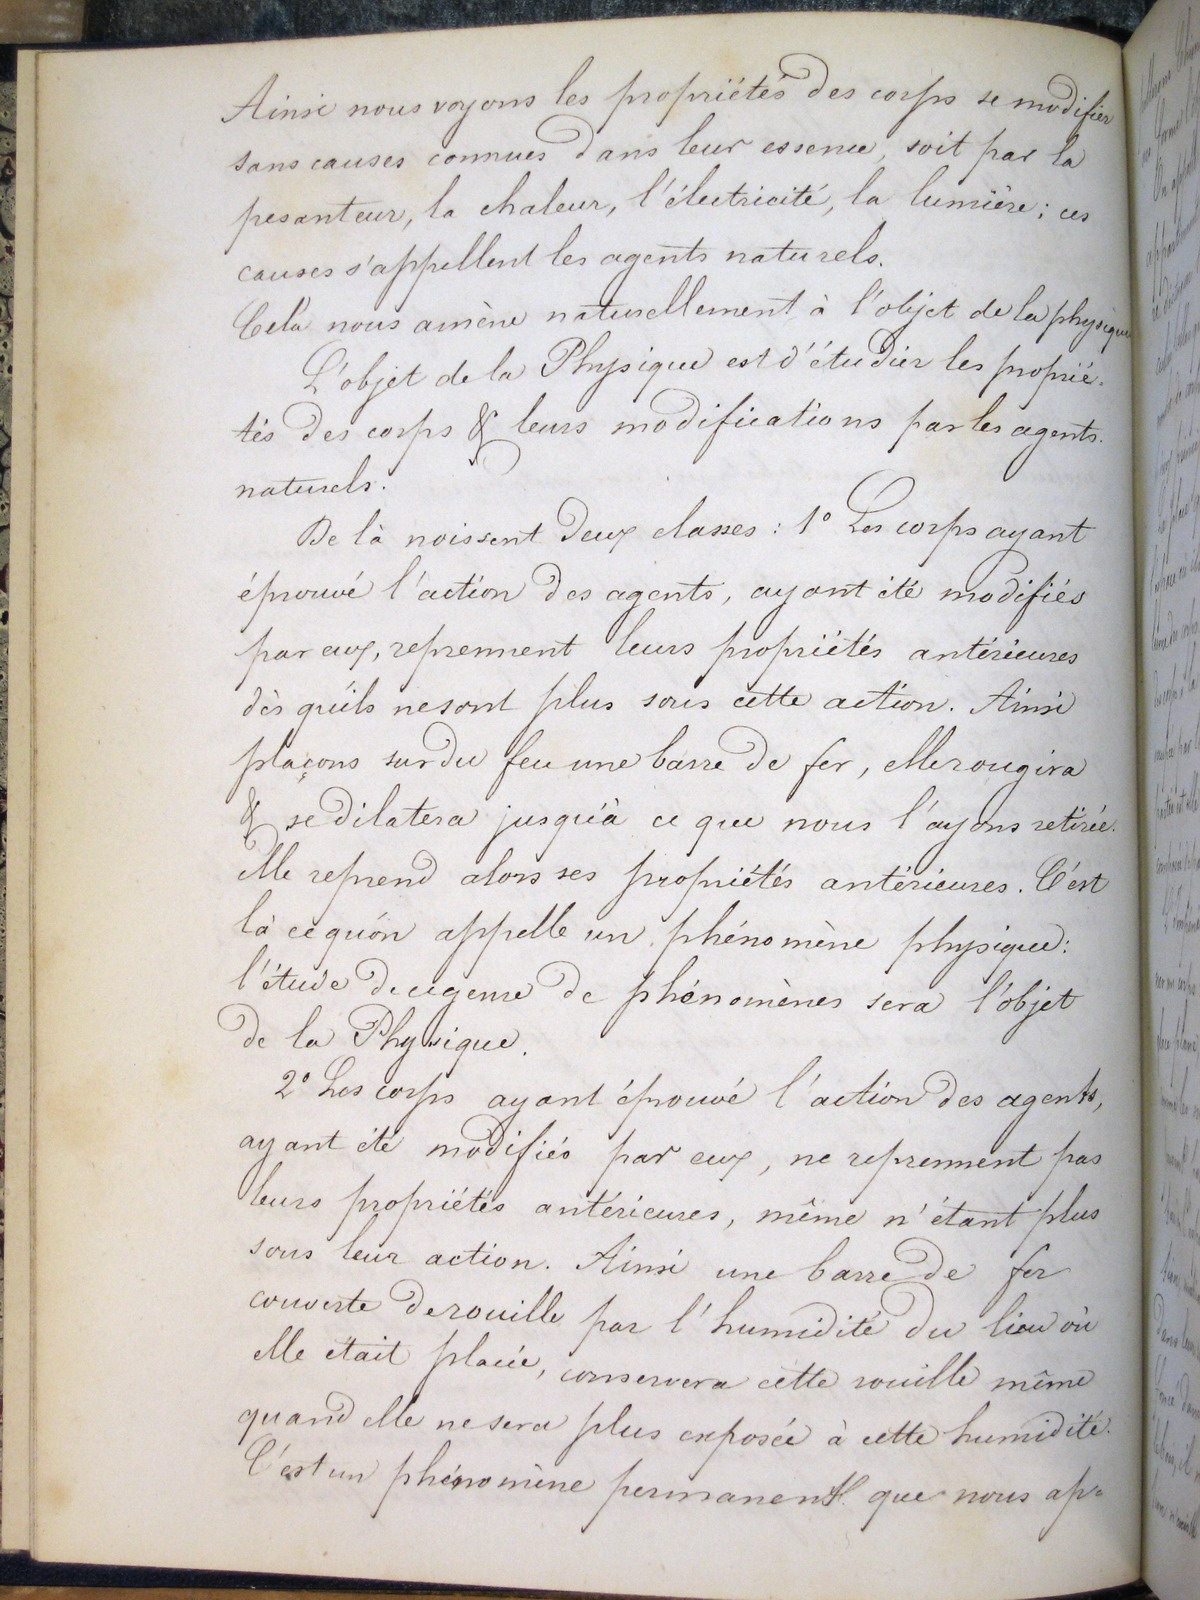 Ainsi nous voyons les propriétés des corps se modifier
sans causes connues dans leur essence, soit par la
pesanteur, la chaleur, l'électricité, la lumière; ces
causes s'appellent les agents naturels.
Cela nous amène naturellement à l'objet de la physique
L'objet de la Physique est d'étudier les proprié-
tés des corps & leurs modifications par les agents
naturels.
De là naissent deux classes : 1° Les corps ayant
éprouvé l'action des agents, ayant été modifiés
par eux, reprennent leurs propriétés antérieures
dès qu'ils ne sont plus sous cette action. Ainsi
plaçons sur du feu une barre de fer, elle rougira
& se dilatera jusqu'à ce que nous l'ayons retirée.
Elle reprend alors ses propriétés antérieures. C'est
là ce qu'on appelle un phénomène physique:
l'étude de ce genre de phénomènes sera l'objet
de la Physique.
2° Les corps ayant éprouvé l'action des agents,
ayant été modifiés par eux, ne reprennent pas
leurs propriétés antérieures, même n'étant plus
sous leur action. Ainsi une barre de fer
couverte de rouille par l'humidité du lieu où
elle était placée, conservera cette rouille même
quand elle ne sera plus exposée à cette humidité.
C'est un phénomène permanent que nous ap-